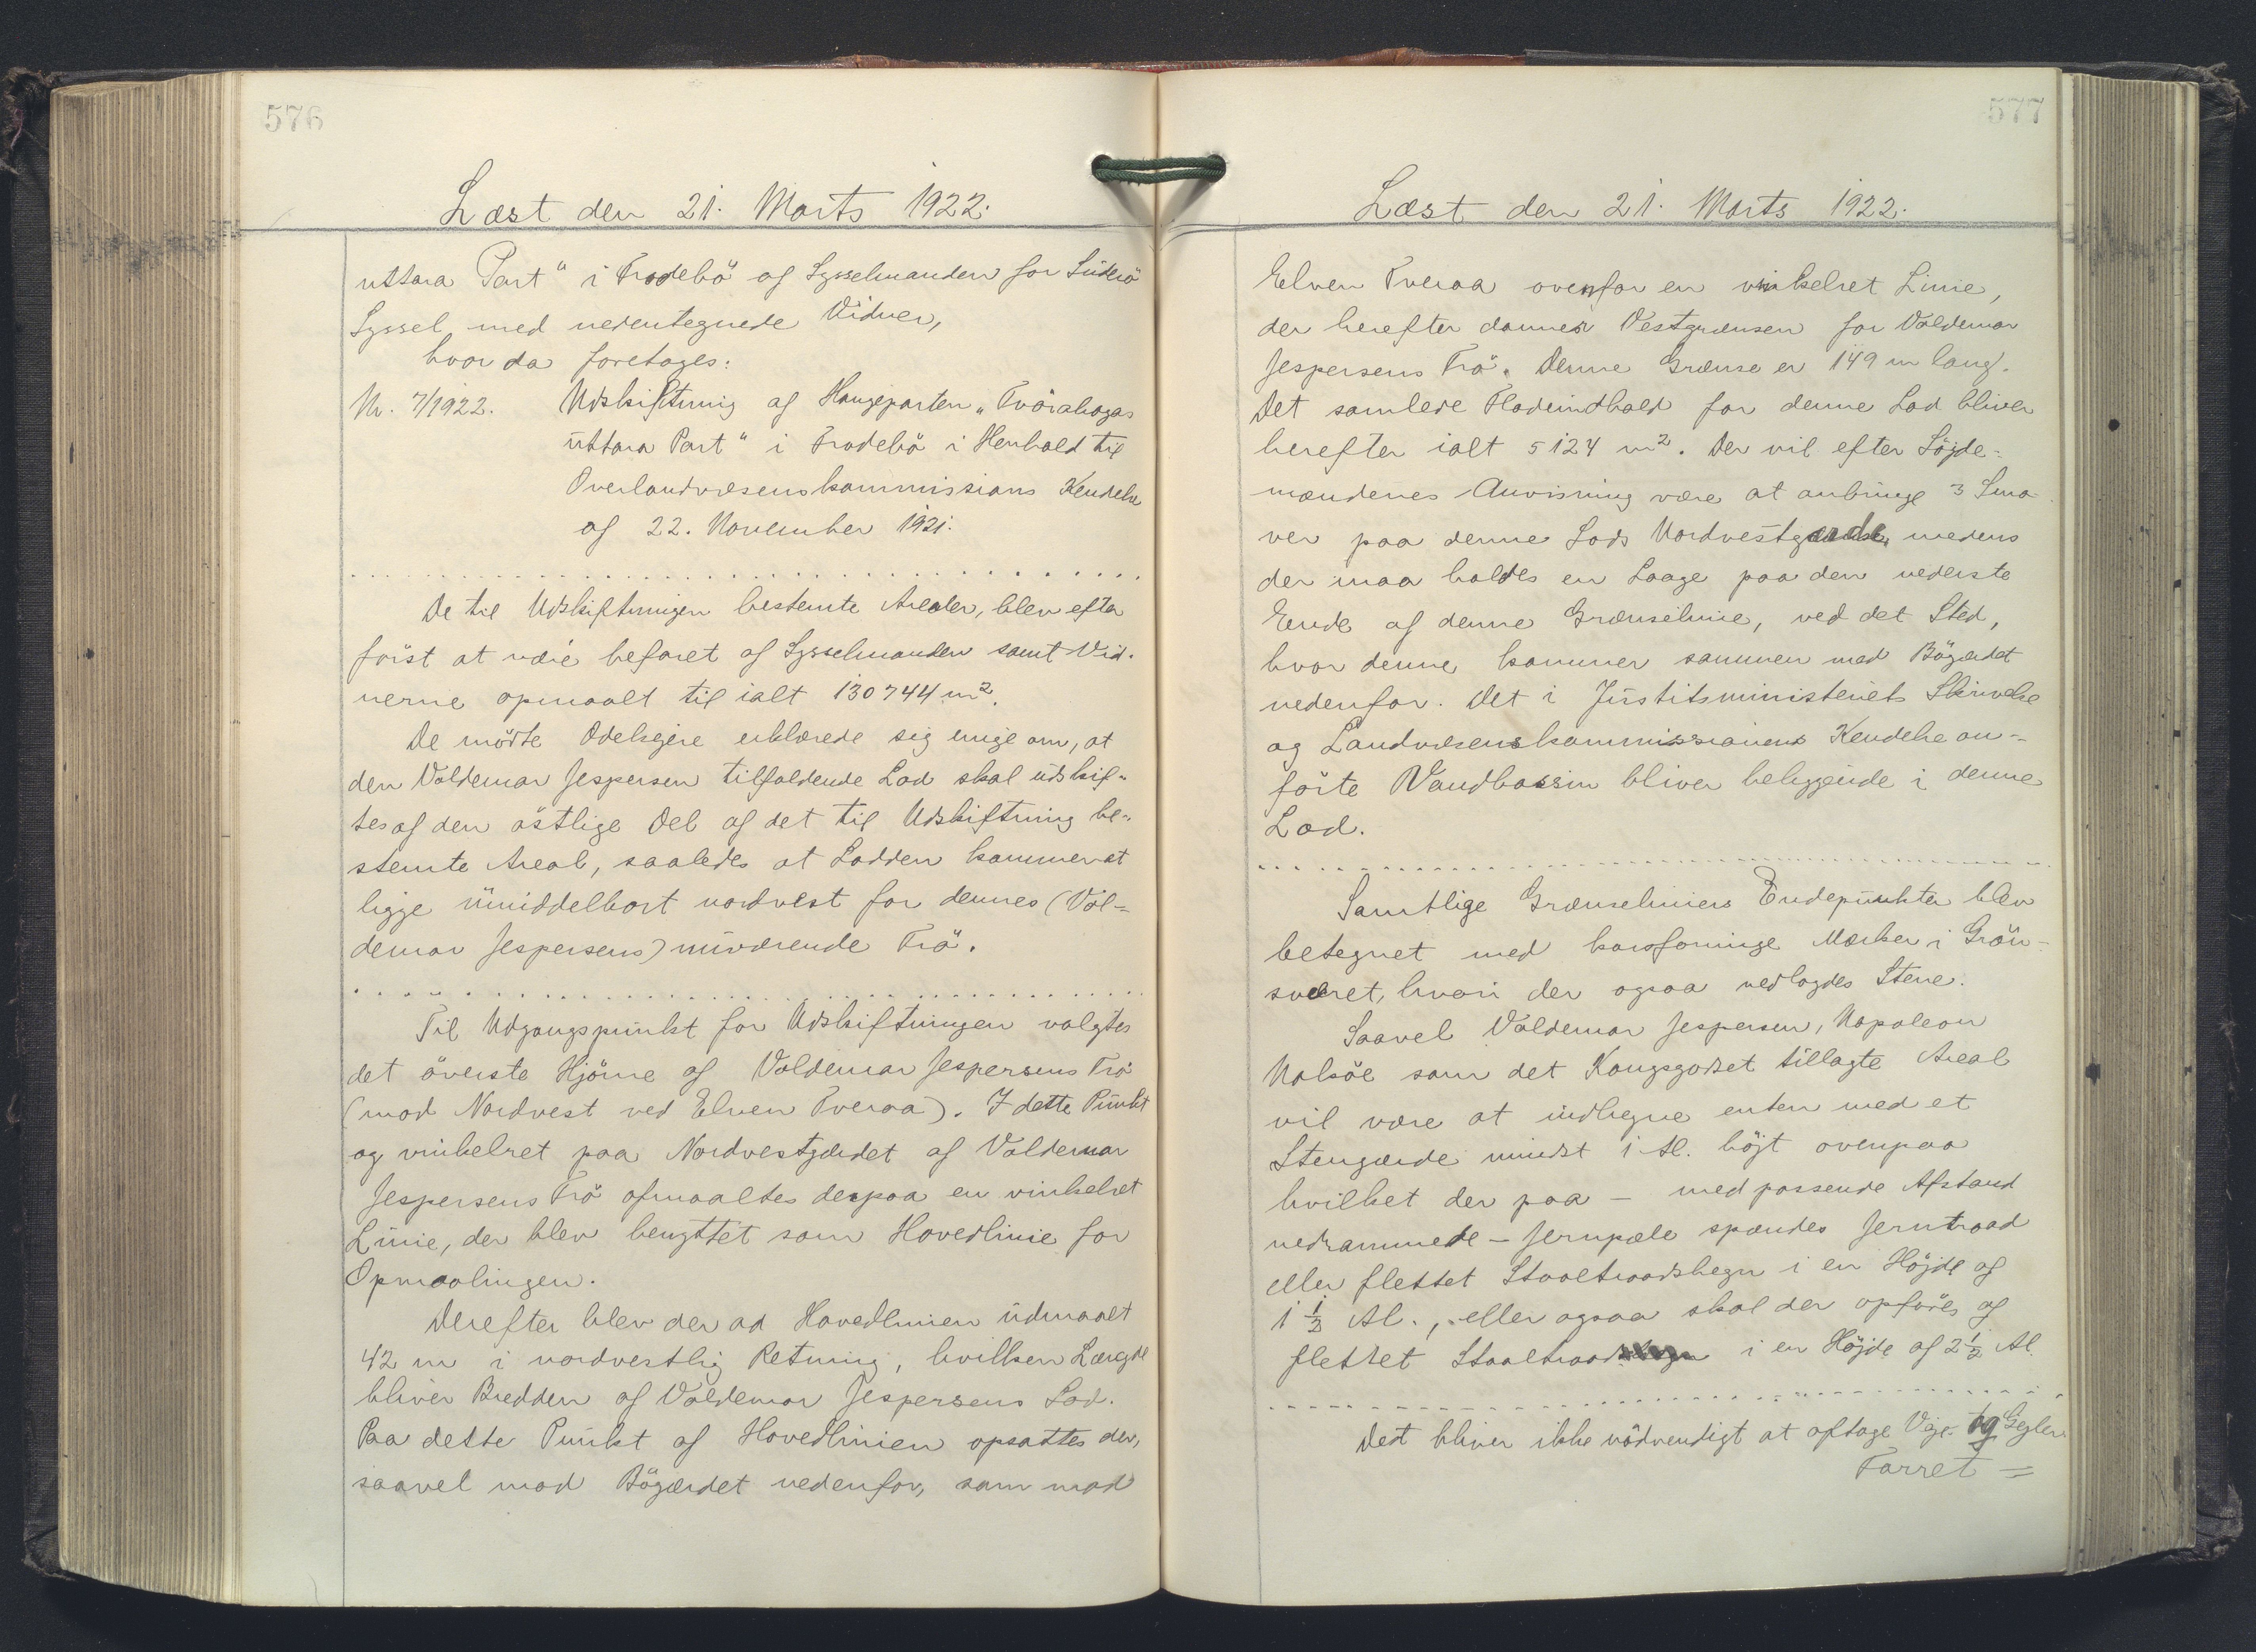 576
Læst den 21. Marts 1922.
uttara Part" i Frodebö af Sysselmanden for Süderö
Syssel med nedentegnede Vidner,
hvor da foretages:
Nr. 7/1922. Udskiftning af Haugeparten "Tvörahagas
uttara Part" i Frodebö i Henhold til
Overlandvæsenskommissions Kendelse
af 22. November 1921.
De til Udskiftningen bestemte Arealer, blev efter
först at være befaret af Sysselmanden samt Vid-
nerne opmaalt til ialt 130744 m².
De mödte Odelsejere erklærede sig enige om, at
den Valdemar Jespersen tilfaldende Lod skal udskif-
tes af den östlige Del af det til Udskiftning be-
stemte Areal, saaledes at Lodden kommer at
ligge umiddelbart nordvest for dennes (Val-
demar Jespersens) nuværende Trö.
Til Udgangspunkt for Udskiftningen valgtes
det överste Hjörne af Valdemar Jespersens Trö
(mod Nordvest ved Elven Tveraa). I dette Punkt
og vinkelret paa Nordvestgærdet af Valdemar
Jespersens Trö afmaaltes derpaa en vinkelret
Linie, der blev benyttet som Hovedlinie for
Opmaalingen.
Derefter blev der ad Hovedlinien udmaalt
42 m i nordvestlig Retning, hvilken Længde
bliver Bredden af Valdemar Jespersens Lod.
Paa dette Punkt af Hovedlinien opsattes der,
saavel mod Bögærdet nedenfor, som mod
577
Læst den 21. Marts 1922.
Elven Tveraa ovenfor en vinkelret Linie,
der herefter danner Vestgrænsen for Valdemar
Jespersens Trö. Denne Grænse er 149 m lang.
Det samlede Fladeindhold for denne Lod bliver
herefter ialt 5124 m². Der vil efter Söjde-
mændenes Anvisning være at anbringe 3 Smo-
ver paa denne Lods Nordvestgærde, medens
der maa holdes en Laage paa den nederste
Ende af denne Grænselinie, ved det Sted,
hvor denne kommer sammen med Bögærdet
nedenfor. Det i Justitsministeriets Skrivelse
og Landvæsenskommissionens Kendelse an-
förte Vandbassin bliver beliggende i denne
Lod.
Samtlige Grænseliniers Endepunkter blev
betegnet med korsformige Mærker i Grön-
sværet, hvori der ogsaa nedlagdes Stene.
Saavel Valdemar Jespersen, Napoleon
Nolsöe som det Kongsgodset tillagte Areal
vil være at indhegne enten med et
Stengærde mindst 1 Al. höjt ovenpaa
hvilket der paa – med passende Afstand
nedrammede – Jernpæle spændes Jerntraad
eller flettet Staaltraadshegn i en Höjde af
1 1/2 Al., eller ogsaa skal der opföres af
flettet Staaltraadshegn i en Höjde af 2 1/2 Al.
Det bliver ikke nödvendigt at aftage Veje- og
Torret =